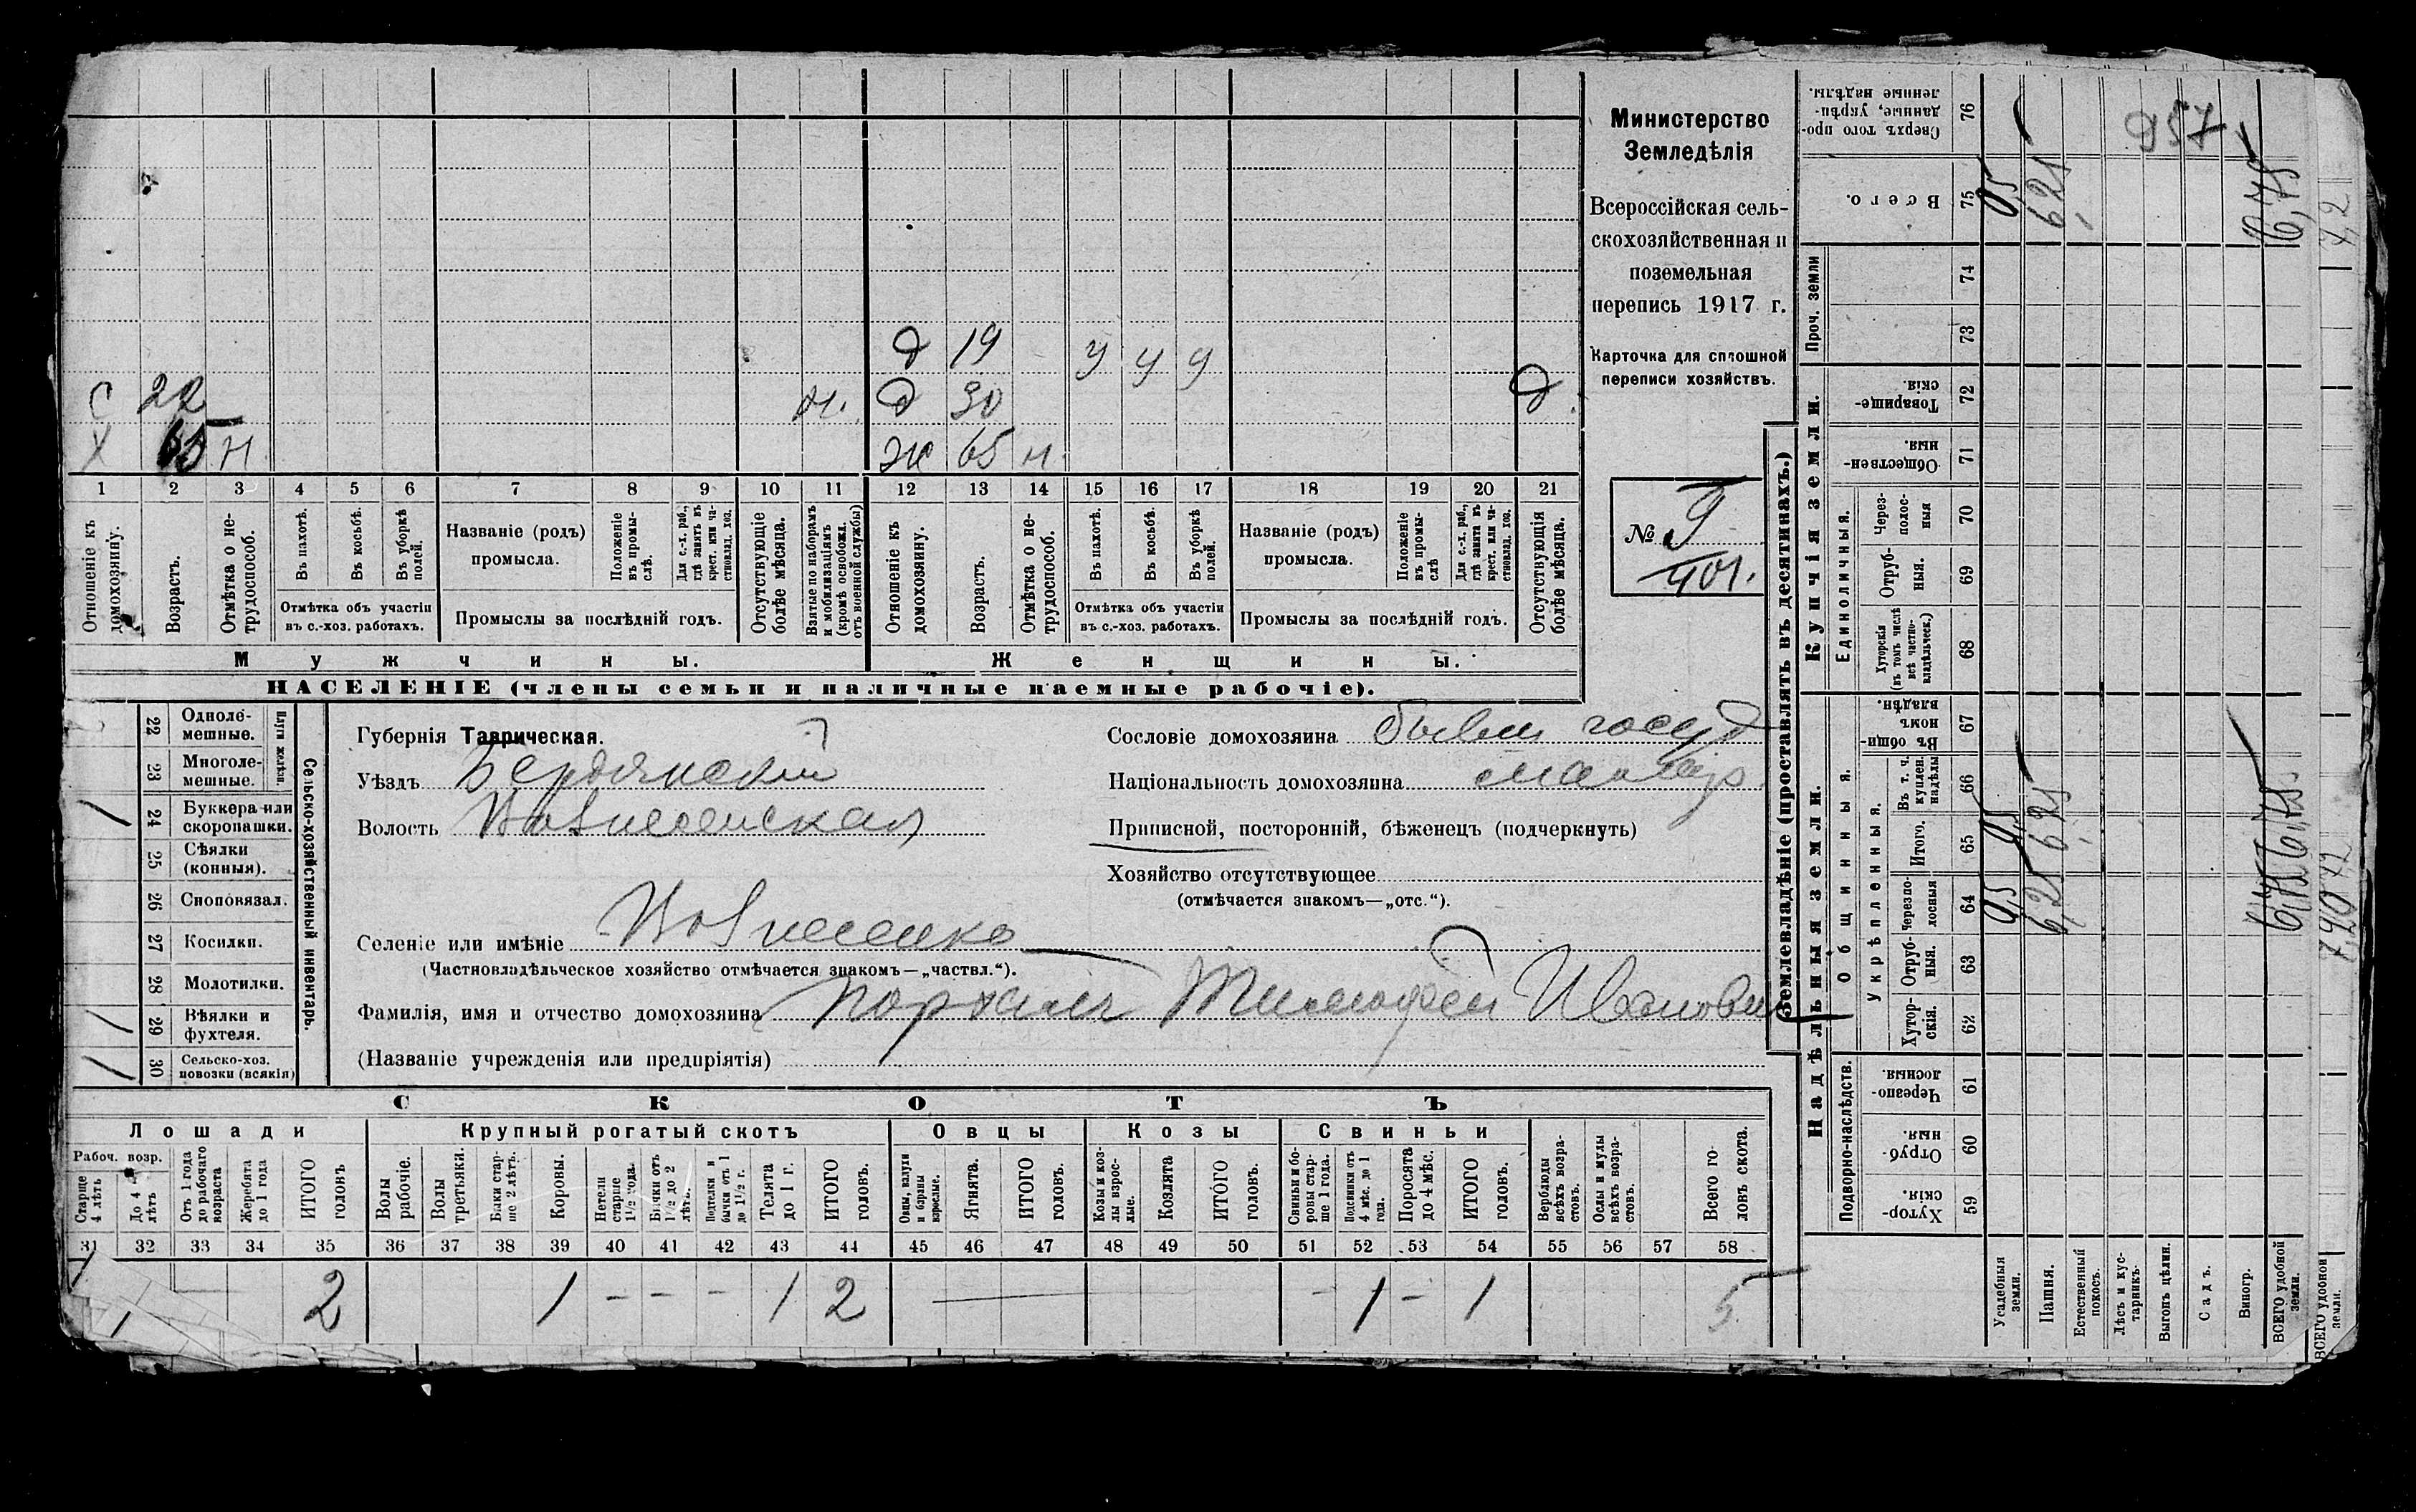 Министерство
Земледѣлія
Всероссійская сель-
скохозяйственная и
поземельная
перепись 1917 г.
Карточка для сплошной
переписи хозяйствъ.
№ 9
401.
д 19 у у у
С 22 м. д 30 д.
Х 65 н ж 65 н
1 2 3 4 5 6 7 8 9 10 11 12 13 14 15 16 17 18 19 20 21
Отношеніе къ домохозяину.
Возрастъ.
Отмѣтка о не-трудоспособ.
Въ пахотѣ.
Въ косьбѣ.
Въ уборкѣ полей.
Отмѣтка объ участіи
въ с.-хоз. работахъ.
Названіе (родъ)
промысла.
Положеніе въ промы-слѣ.
Для с.-х. раб., гдѣ занятъ въ крест. или ча-стновлад. хоз.
Промыслы за послѣдній годъ.
Отсутствующіе болѣе мѣсяца.
Взятые по наборамъ и мобилизаціямъ (кромѣ освобожд. отъ военной службы)
Отношеніе къ домохозяину.
Возрастъ.
Отмѣтка о не-трудоспособ.
Въ пахотѣ.
Въ косьбѣ.
Въ уборкѣ полей.
Отмѣтка объ участіи
въ с.-хоз. работахъ.
Названіе (родъ)
промысла.
Положеніе въ промы-слѣ
Для с.-х. раб., гдѣ занята въ крест. или ча-стновлад. хоз.
Промыслы за послѣдній годъ.
Отсутствующія болѣе мѣсяца.
Мужчины.
Женщины.
НАСЕЛЕНІЕ (члены семьи и наличные наемные рабочіе).
Сельско-хозяйственный инвентарь.
22 Одноле-мешные.
23 Многоле-мешные.
24 Буккера или скоропашки. 1
25 Сѣялки (конныя).
26 Сноповязал.
27 Косилки.
28 Молотилки.
29 Вѣялки и фухтеля. 1
30 Сельско-хоз. повозки (всякія) 1
Губернія Таврическая.
Уѣздъ Бердянскій
Волость Вознесенская
Селеніе или имѣніе Вознесенка
(Частновладѣльческое хозяйство отмѣчается знакомъ—„частвл.“).
Фамилія, имя и отчество домохозяина Тимофей Иванович
(Названіе учрежденія или предпріятія)
Сословіе домохозяина бывш госуд
Національность домохозяина малор.
Приписной, посторонній, бѣженецъ (подчеркнуть)
Хозяйство отсутствующее
(отмѣчается знакомъ—„отс.“).
СКОТЪ
Лошади
Крупный рогатый скотъ
Овцы
Козы
Свиньи
Рабоч. возр.
Старше 4 лѣтъ
До 4 лѣтъ
Отъ 1 года до рабочаго возраста
Жеребята до 1 года
ИТОГО головъ
Волы рабочіе.
Волы третьяки.
Быки стар-ше 2 лѣтъ.
Коровы.
Нетели старше 1½ года.
Бычки отъ 1½ до 2 лѣтъ.
Подтелки и бычки отъ 1 до 1½ г.
Телята до 1 г.
ИТОГО головъ.
Овцы, валухи и бараны взрослые.
Ягнята.
ИТОГО головъ.
Козы и коз-лы взрос-лые.
Козлята
ИТОГО головъ.
Свиньи и бо-ровы стар-ше 1 года.
Подсвинки отъ 4 мѣс. до 1 года.
Поросята до 4 мѣс.
ИТОГО головъ.
Верблюды всѣхъ возра-стовъ.
Ослы и мулы всѣхъ возра-стовъ.
Всего го-ловъ скота.
31 32 33 34 35 36 37 38 39 40 41 42 43 44 45 46 47 48 49 50 51 52 53 54 55 56 57 58
1 2 1 - - - 1 2 — - 1 - 1 5
1
Землевладѣніе (проставлять въ десятинахъ.)
Надѣльныя земли.
Купчія земли.
Подворно-наслѣдств.
Общинныя.
Укрѣпленныя.
Единоличныя.
Проч. земли
59 Хутор-скія.
60 Отруб-ныя.
61 Черезпо-лосныя.
62 Хутор-скія.
63 Отруб-ныя.
64 Черезпо-лосныя
65 Итого.
66 Въ т. ч. куплен. надѣлы
67 Въ общин-номъ владѣн.
68 Хуторскія (въ томъ числѣ всѣ частно-владѣльческ.)
69 Отруб-ныя.
70 Через-полос-ныя
71 Обществен-ныя.
72 Товарище-скія.
73
74
75 Всего.
76 Сверхъ того про-данные, укрѣп-ленные надѣлы.
Усадебныя земли. 0,5 0,5 0,5
Пашня. 6,25 6,25 6,25
Естественный покосъ.
Лѣсъ и кус-тарникъ.
Выгонъ цѣлин.
Садъ.
Виногр.
ВСЕГО удобной земли. 6,75 6,75 6,75
957
ВСЕГО удобной земли. 7,2